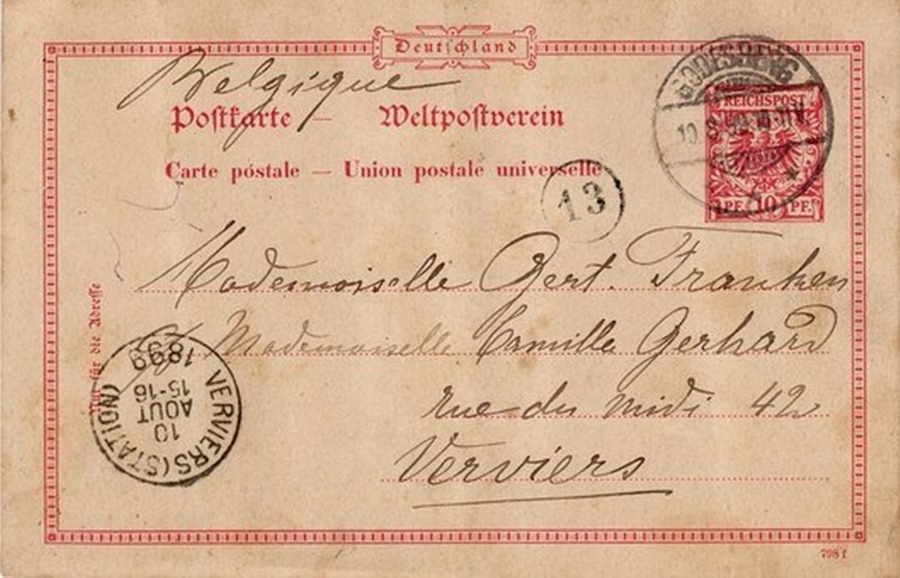 Deutschland
Belgique
Postkarte — Weltpostverein
Carte postale — Union postale universelle
GODESBERG
10 8 99 10-11 V.
REICHSPOST
10 PF. 10 PF.
13
Nur für die Adresse
Mademoiselle Gert. Franken
p/a Mademoiselle Camille Gerhard
rue du midi 42
Verviers
VERVIERS (STATION)
10
AOUT
15-16
1899
798 f